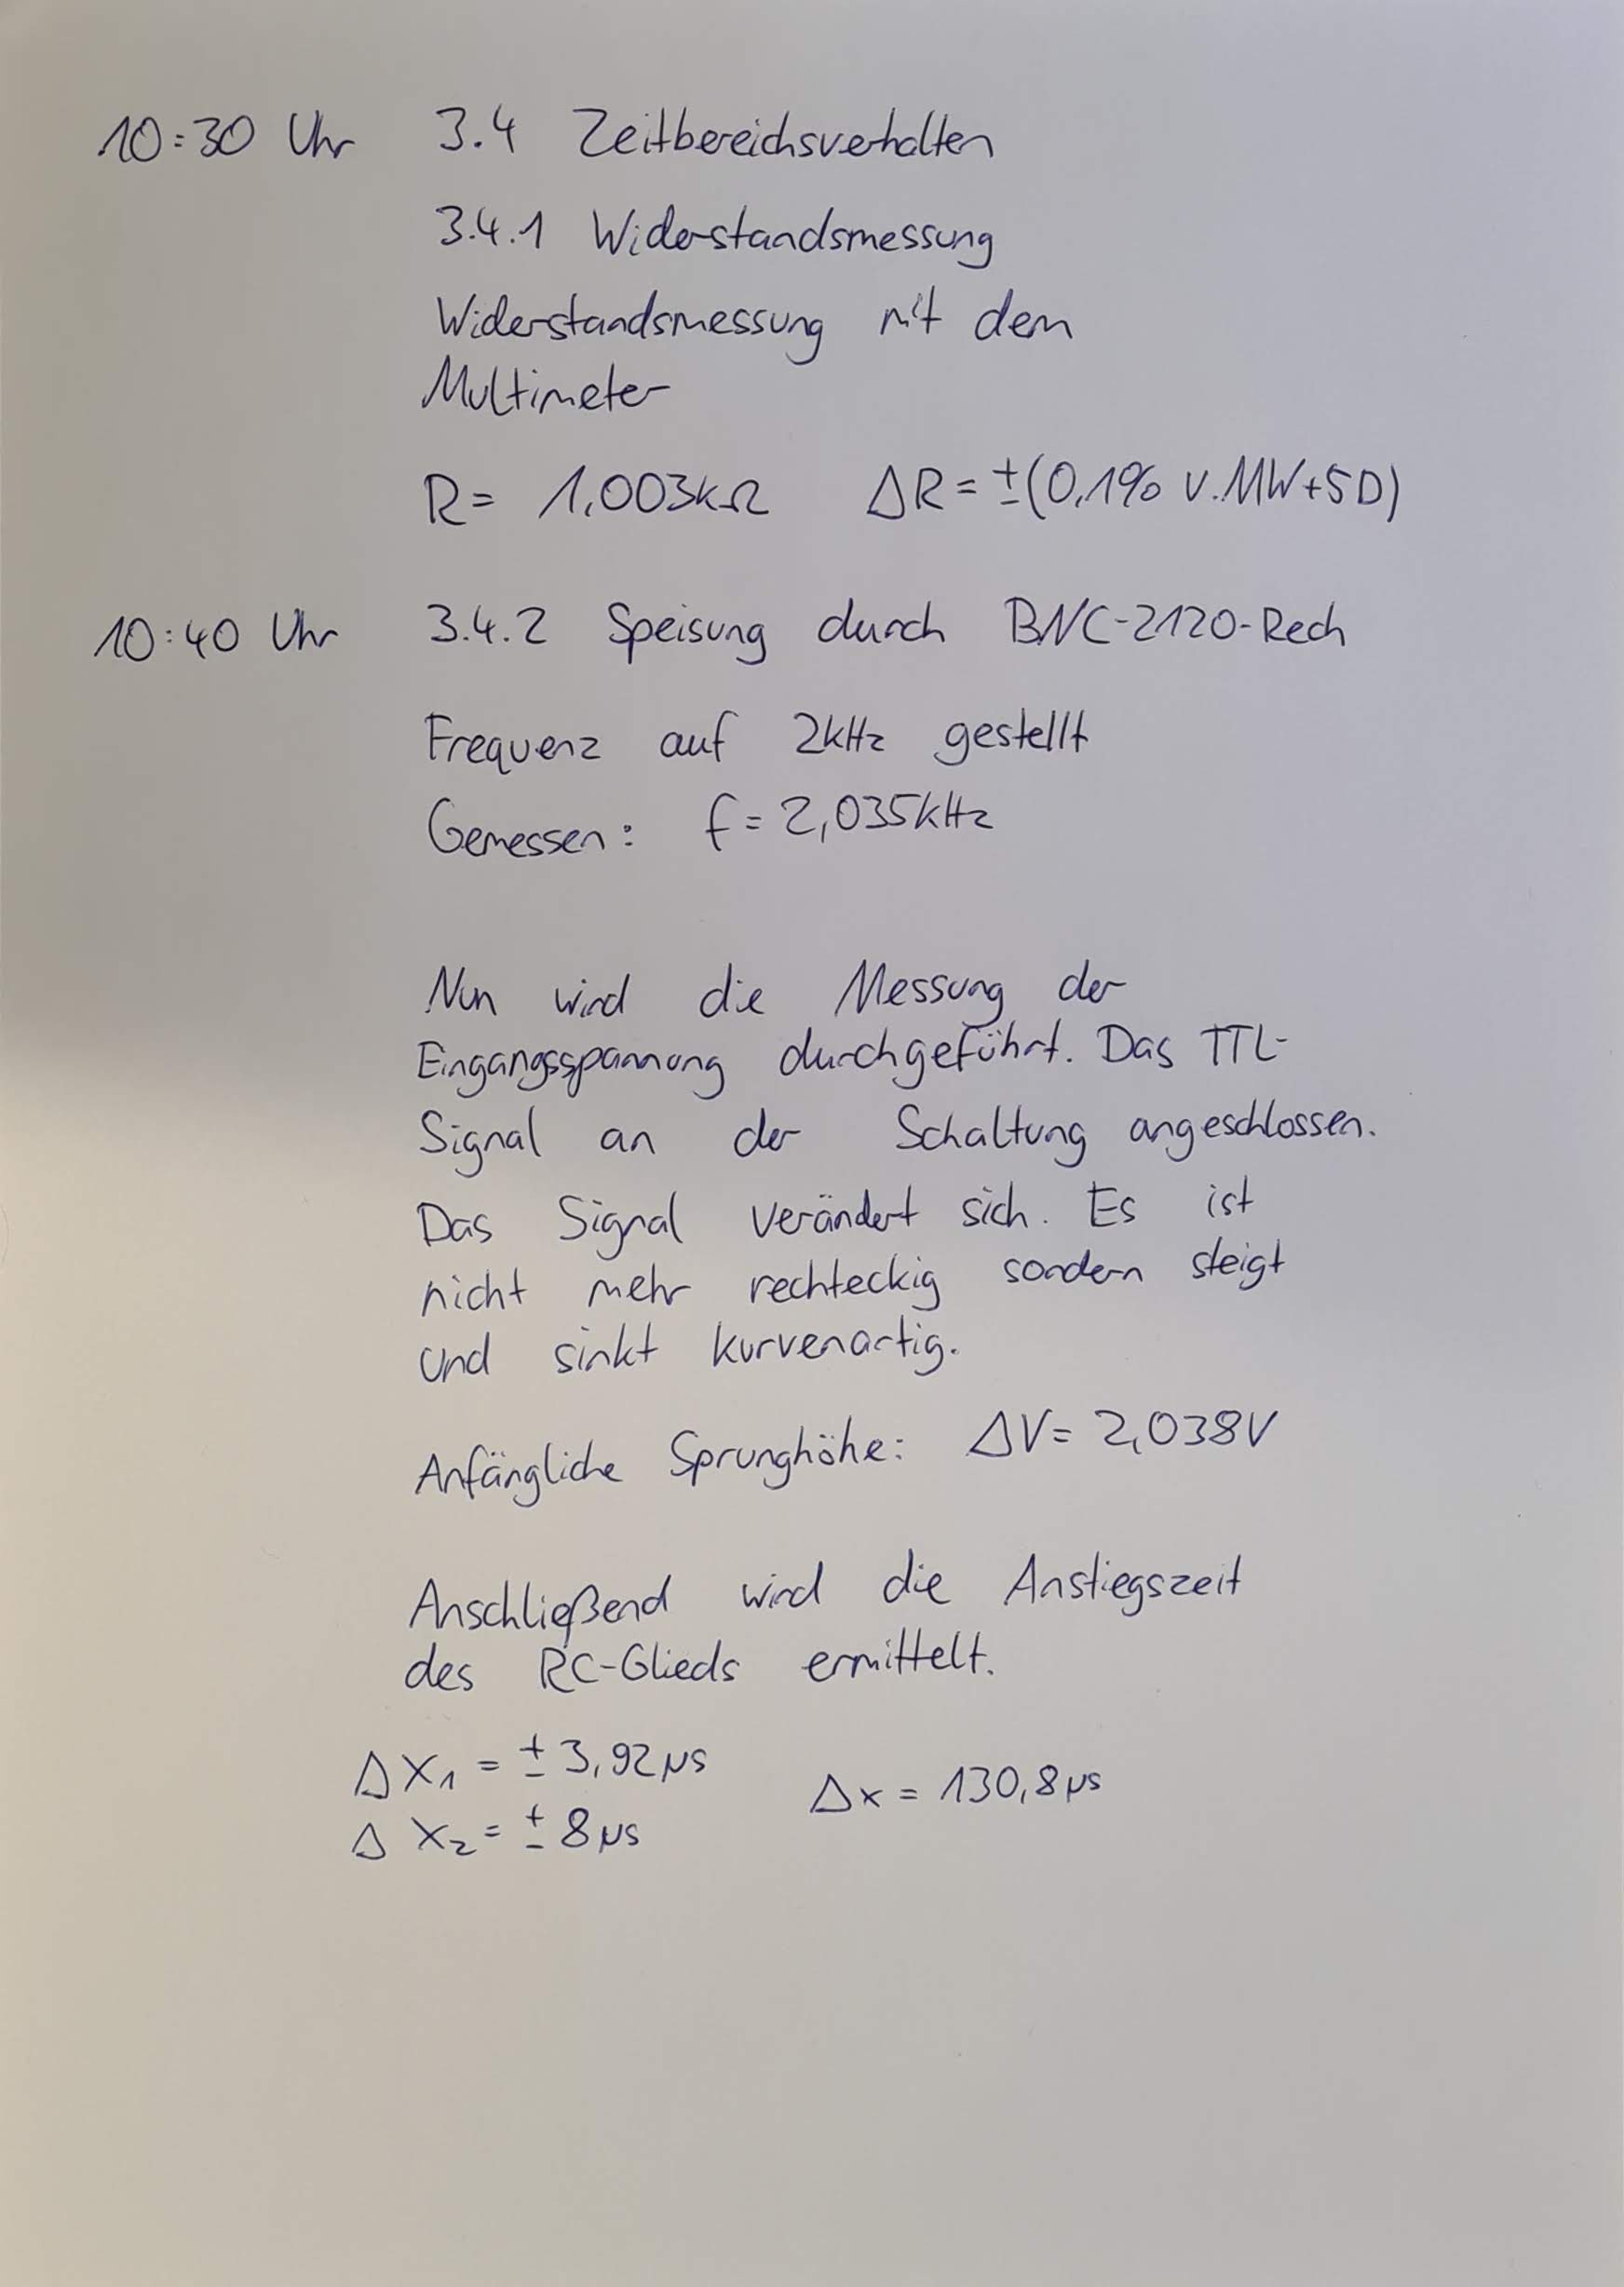 10:30 Uhr 3.4 Zeitbereichsverhalten
3.4.1 Widerstandsmessung
Widerstandsmessung mit dem
Multimeter
R = 1,003kΩ ΔR = ±(0,1% v.MW+5D)
10:40 Uhr 3.4.2 Speisung durch BNC-2120-Rech
Frequenz auf 2kHz gestellt
Gemessen: f = 2,035kHz
Nun wird die Messung der
Eingangsspannung durchgeführt. Das TTL-
Signal an der Schaltung angeschlossen.
Das Signal verändert sich. Es ist
nicht mehr rechteckig sondern steigt
und sinkt kurvenartig.
Anfängliche Sprunghöhe: ΔV = 2,038V
Anschließend wird die Anstiegszeit
des RC-Glieds ermittelt.
Δx₁ = ± 3,92µs Δx = 130,8µs
Δx₂ = ± 8µs